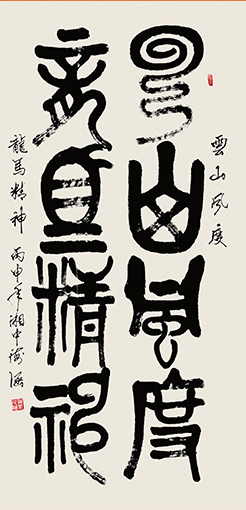 雲山風度
雲山風度
龍馬精神
龍馬精神 丙申年湘中